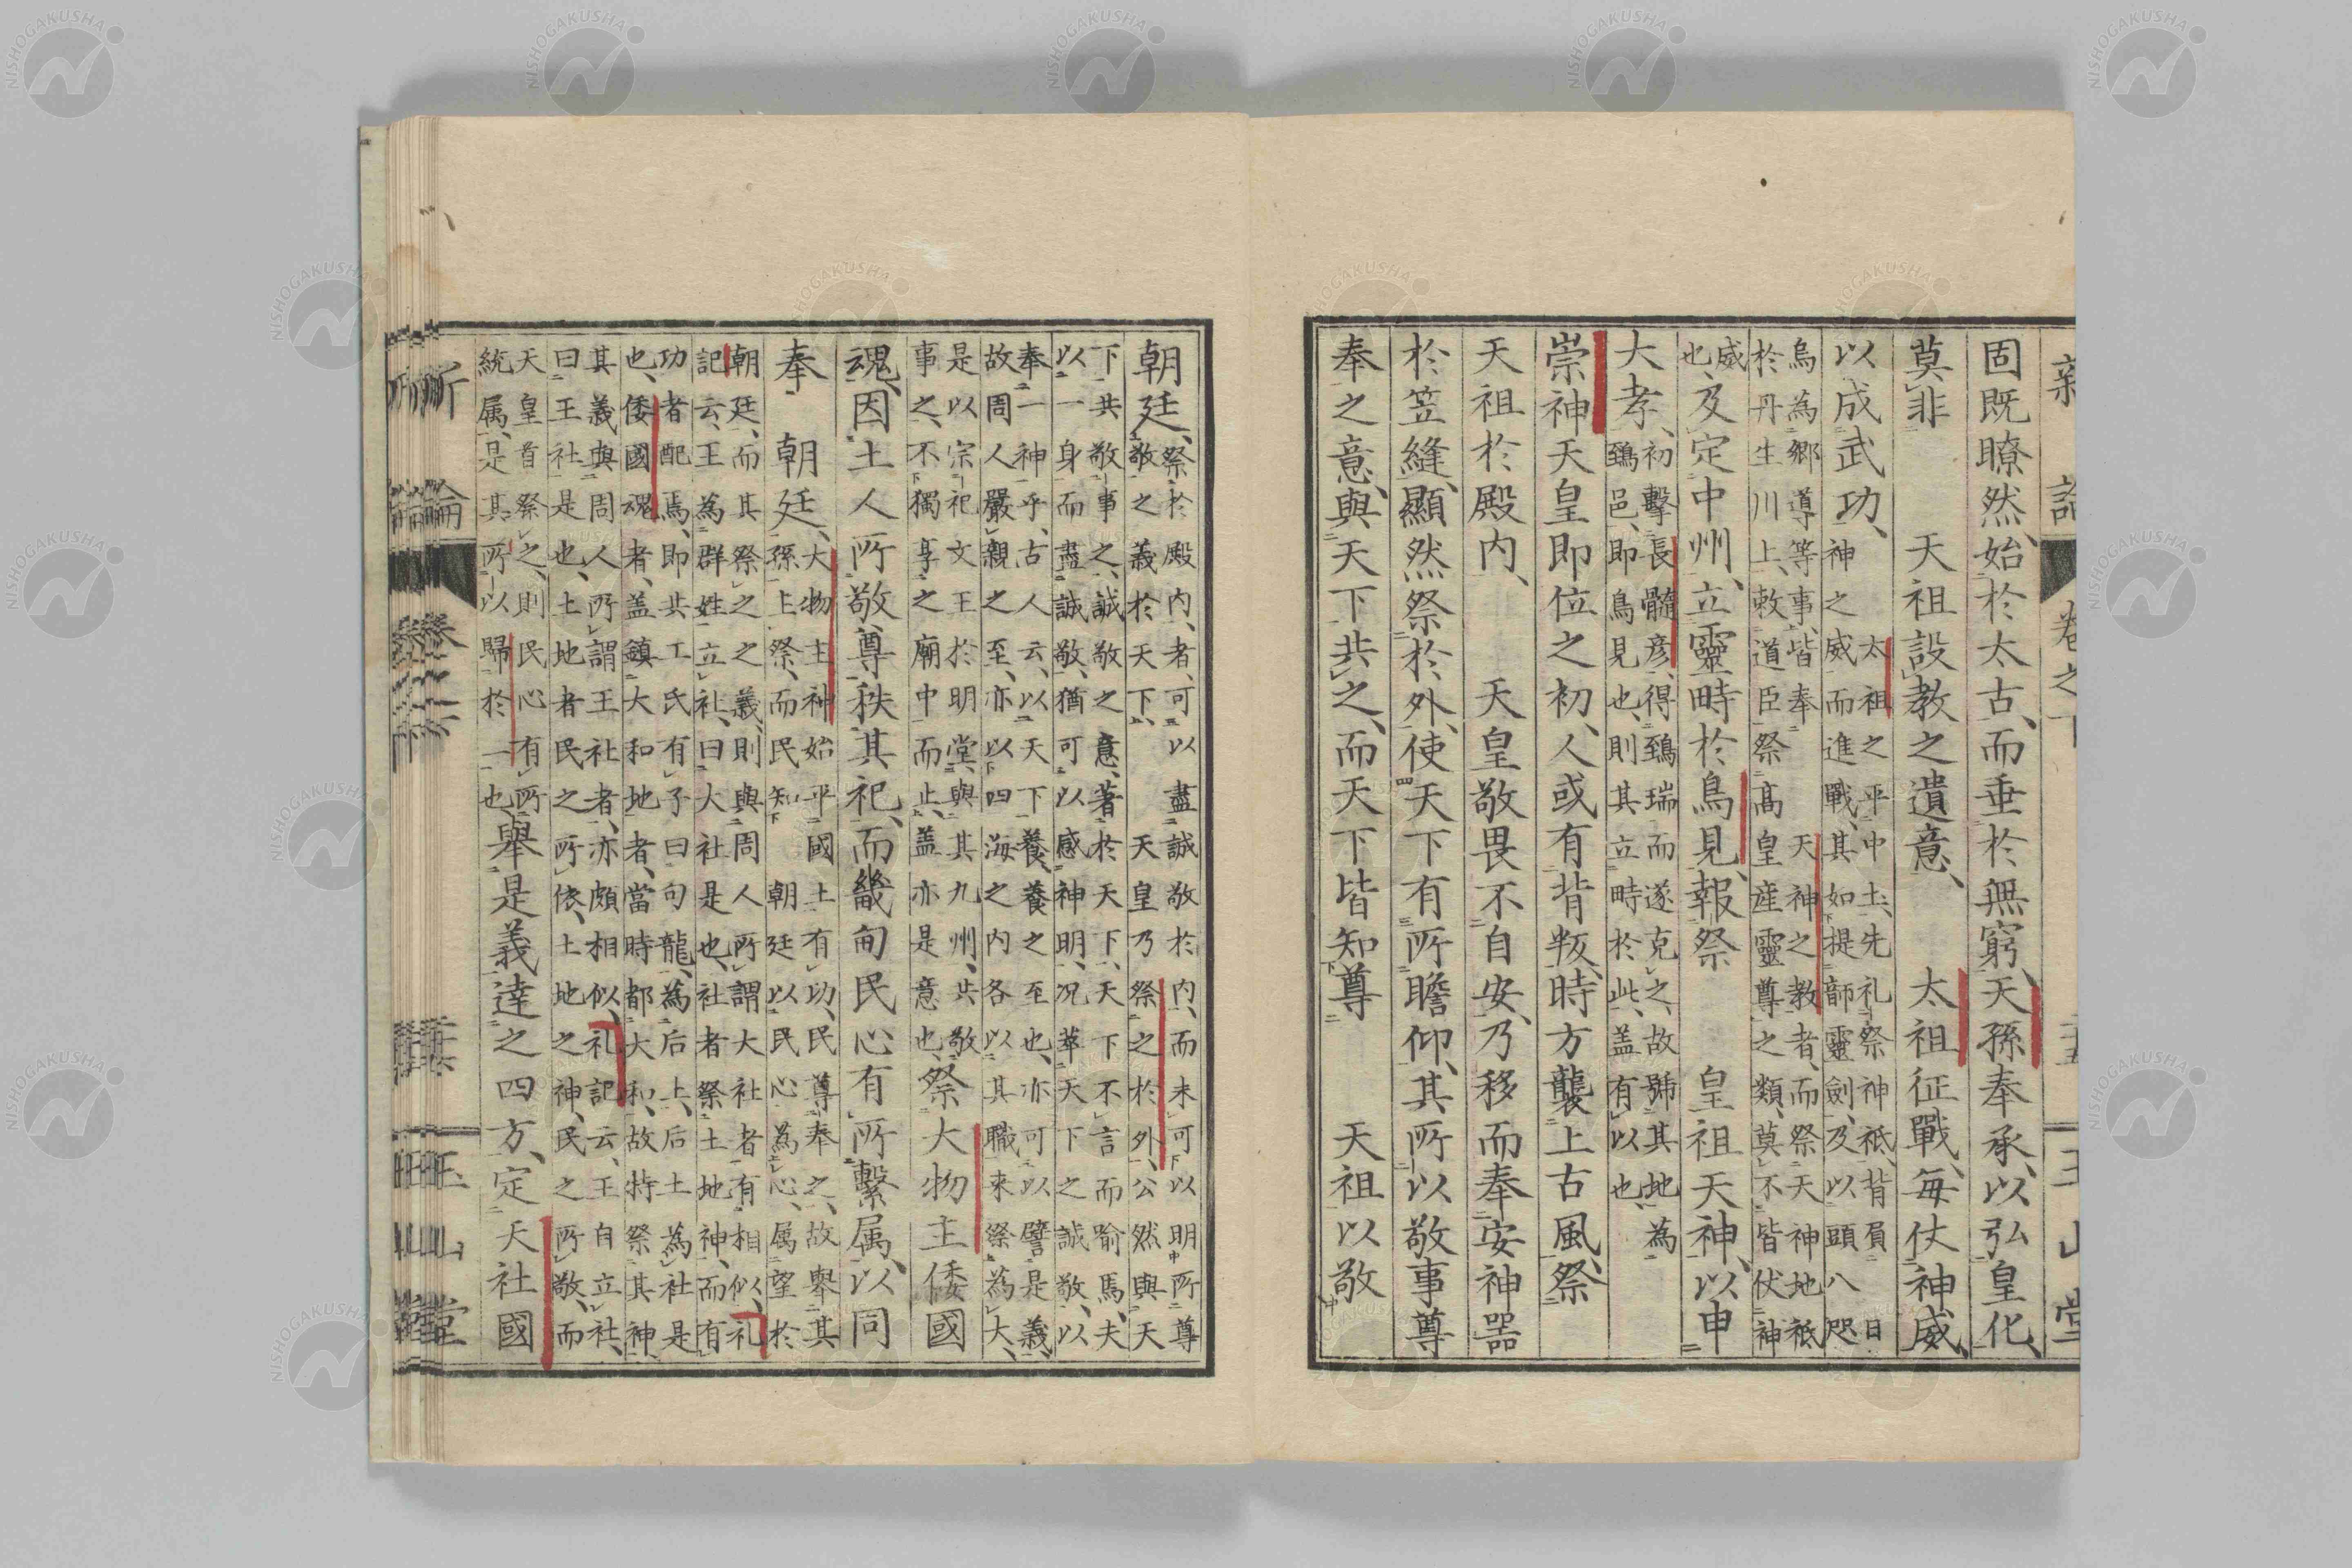 新論 卷之下 玉山堂
固既瞭然、始於太古、而垂於無窮、天孫奉承、以弘皇化、
莫非 天祖設教之遺意、 太祖征戰、每仗神威、
以成武功、太祖之平中土、先礼祭神祇、背負日
神之威而進戰、其如提韴靈劍、及以頭八咫
烏為鄉導等事、皆奉 天神之教者、而祭天神地祇
於丹生川上、敕道臣祭高皇産靈尊之類、莫不皆伏神
威
也、及定中州、立靈畤於鳥見、報祭 皇祖天神、以申
大孝、初擊長髓彦、得鵄瑞而遂克之、故號其地為
鵄邑、即鳥見也、則其立畤於此、盖有以也、
崇神天皇即位之初、人或有背叛、時方襲上古風、祭
天祖於殿内、 天皇敬畏不自安、乃移而奉安神器
於笠縫、顯然祭於外、使天下有所瞻仰、其所以敬事尊
奉之意、與天下共之、而天下皆知尊 天祖以敬
朝廷、祭於殿内者、可以盡誠敬於内、而未可以明所尊
敬之義於天下、 天皇乃祭之於外、公然與天
下共敬事之、誠敬之意、著於天下、天下不言而喻焉、夫
以一身而盡誠敬、猶可以感神明、況萃天下之誠敬、以
奉一神乎、古人云、以天下養、養之至也、亦可以譬是義、
故周人嚴親之至、亦以四海之内各以其職来祭為大、
是以宗祀文王於明堂、與其九州共敬
事之、不獨享之廟中而止、盖亦是意也、祭大物主倭國
魂、因土人所敬、尊秩其祀、而畿甸民心有所繫属、以同
奉 朝廷、大物主神始平國土有功、民尊奉之、故舉其
孫上祭、而民知 朝廷以民心為心、属望於
朝廷、而其祭之之義、則與周人所謂大社者有相似、礼
記云、王為群姓立社、曰大社是也、社者祭土地神、而有
功者配焉、即共工氏有子曰句龍、為后土、后土為社是
也、倭國魂者、盖鎮大和地者、當時都大和、故特祭其神、
其義與周人所謂王社者、亦頗相似、礼記云、王自立社、
曰王社是也、土地者民之所依、土地之神、民之所敬、而
天皇首祭之、則民心有所
統属、是其所以歸於一也、舉是義達之四方、定天社國
新論